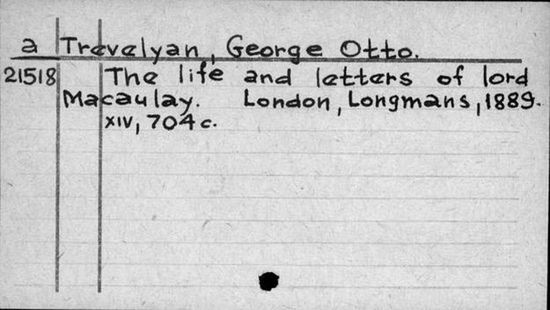 a Trevelyan, George Otto.
21518 The life and letters of lord
Macaulay. London, Longmans, 1889.
XIV, 704 c.